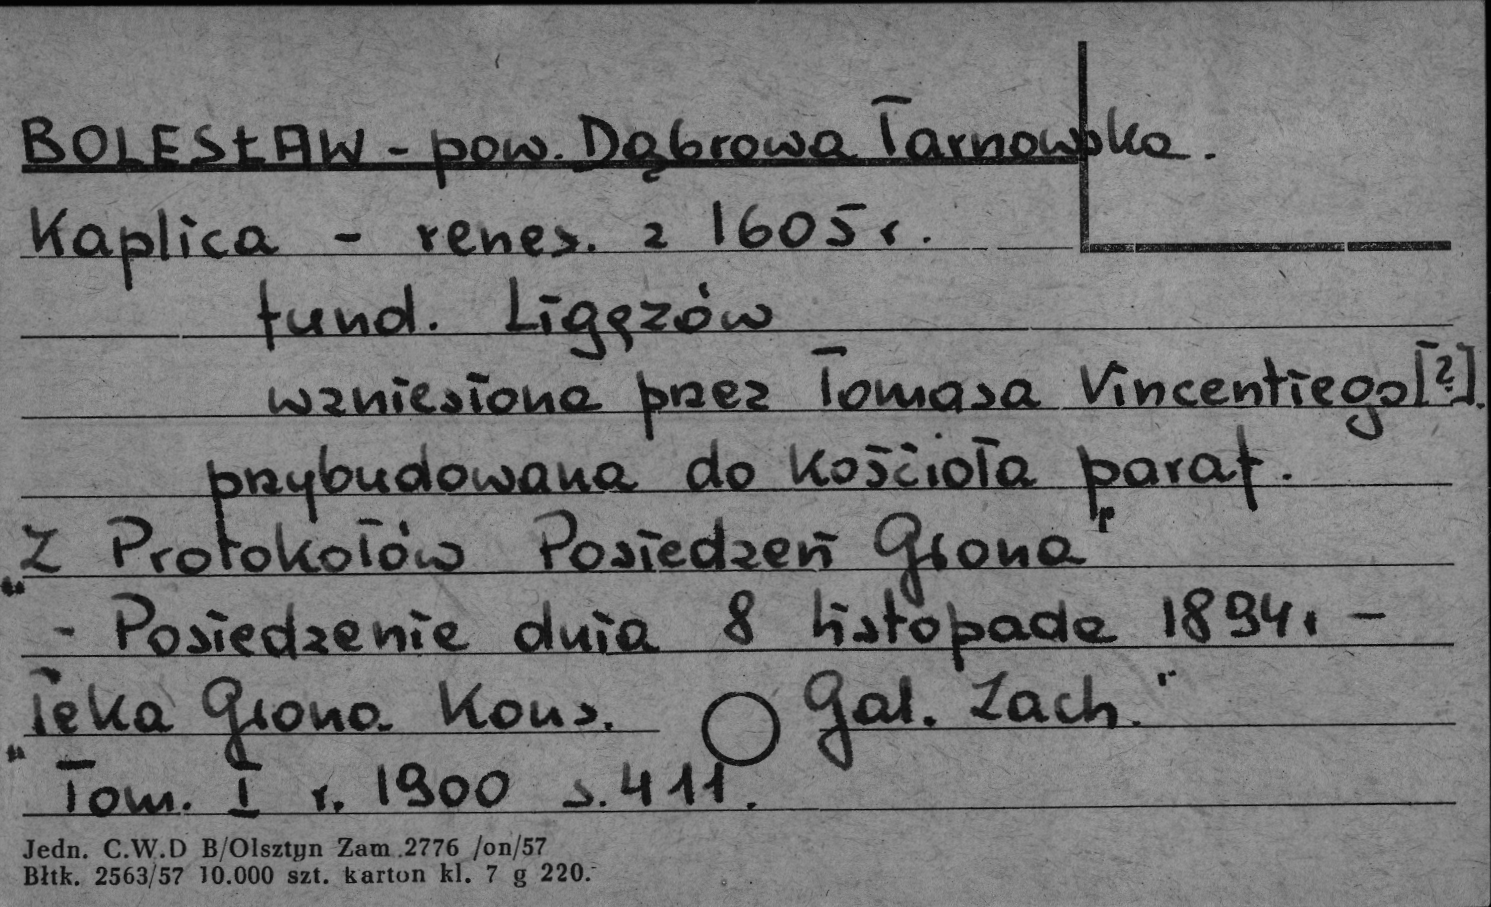 BOLESŁAW - pow. Dąbrowa Tarnowska.
Kaplica - renes. z 1605 r.
fund. Ligęzów
wzniesiona przez Tomasa Vincentiego [?].
przybudowana do kościoła paraf.
„Z Protokołów Posiedzeń Grona"
- Posiedzenie dnia 8 listopada 1894 r -
„Teka Grona Kons. Gal. Zach."
Tom. I r. 1900 s. 411.
Jedn. C.W.D B/Olsztyn Zam .2776 /on/57
Błtk. 2563/57 10.000 szt. karton kl. 7 g 220.-